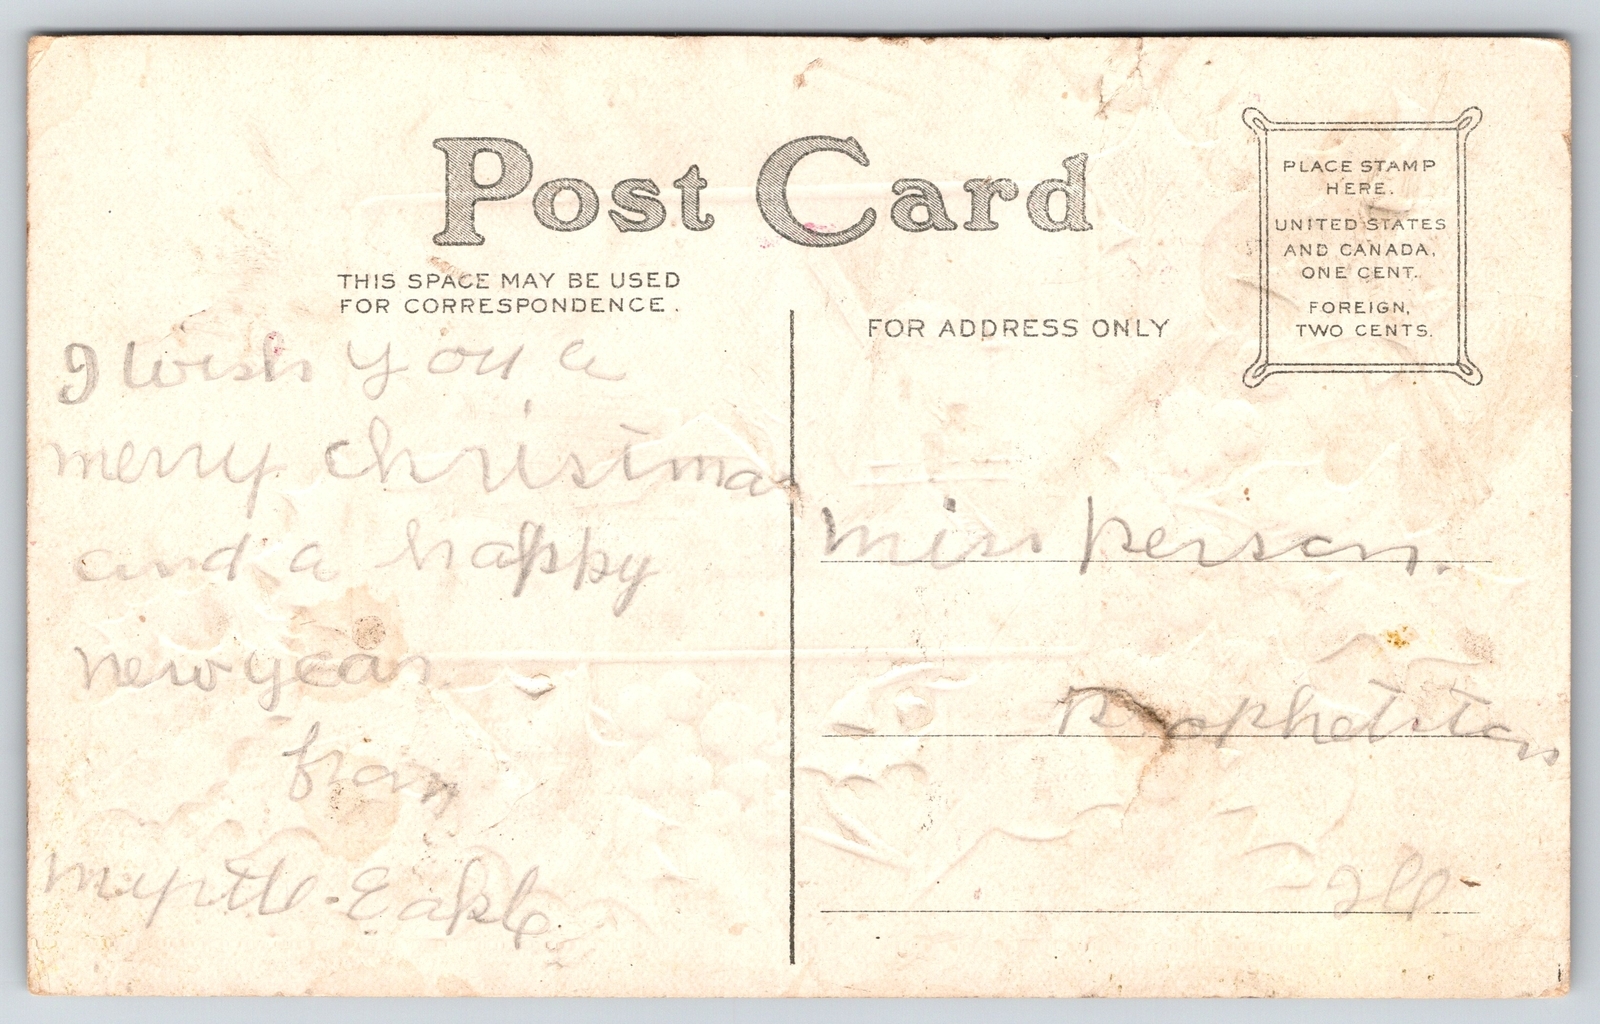 Post Card
THIS SPACE MAY BE USED
FOR CORRESPONDENCE.
I wish you a
merry christmas
and a happy
new year.
from
myrtle Eakle
FOR ADDRESS ONLY
PLACE STAMP
HERE.
UNITED STATES
AND CANADA,
ONE CENT.
FOREIGN,
TWO CENTS.
miss person.
Prophetstown
Ill